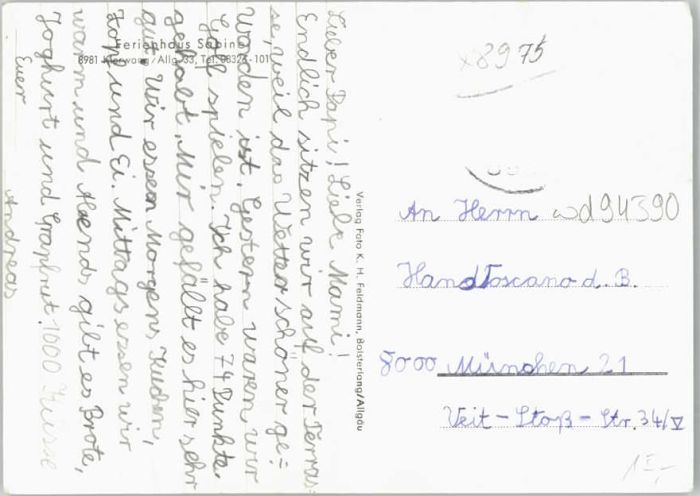 Ferienhaus Sabine
8981 Allg. 33, Tel. 08326-101
Lieber Papi! Liebe Mami!
Endlich sitzen wir auf der Terras-
se, weil das Wetter schöner ge=
worden ist. Gestern waren wir
Golf spielen. Ich habe 74 Punkte
gehabt. Mir gefällt es hier sehr
gut. Wir essen Morgens Kuchen,
Zopf und Ei. Mittags essen wir
warm und Abends gibt es Brote,
Joghurt und Grapfrut. 1000 Küsse
Euer
Andreas
Verlag Foto K. H. Feldmann, Bolsterlang/Allgäu
x8975
An Herrn wd94390
Hand Toscano d. B.
8000 München 21
Veit-Stoß-Str. 34/V
15,-